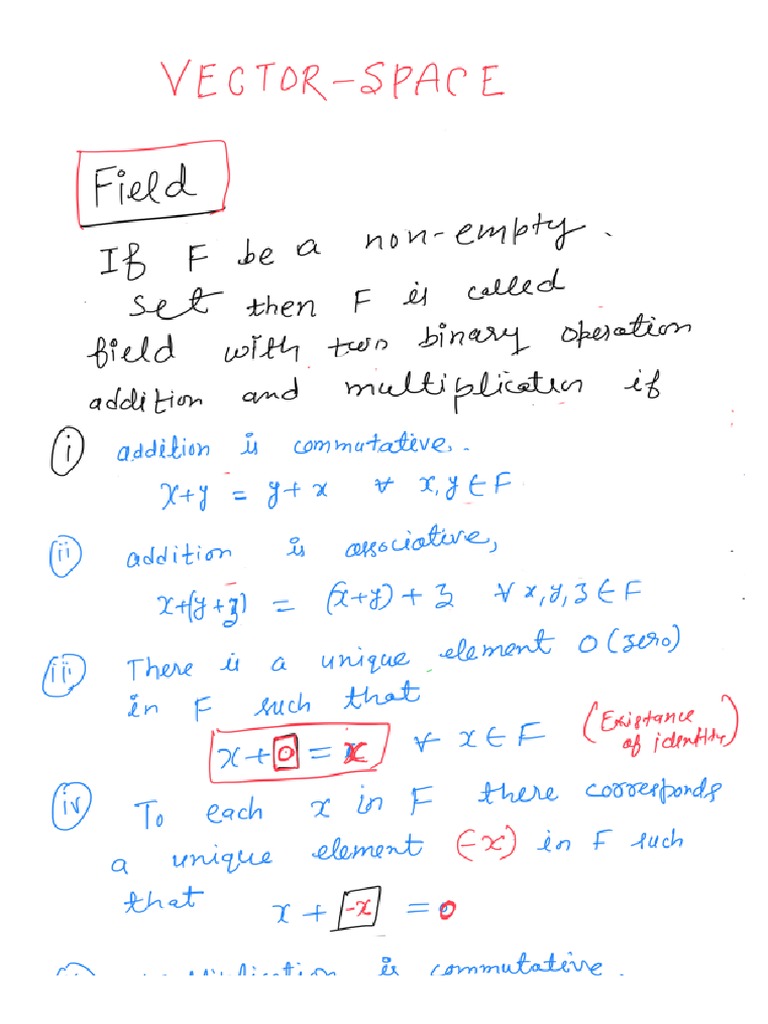 VECTOR-SPACE
Field
If F be a non-empty.
set then F is called
field with two binary operation
addition and multiplication if
(i) addition is commutative.
x+y = y+x ∀ x,y ∈ F
(ii) addition is associative,
x+(y+z) = (x+y)+z ∀ x,y,z ∈ F
(iii) There is a unique element 0 (zero)
in F such that
x+0 = x ∀ x ∈ F (Existance
of identity)
(iv) To each x in F there corresponds
a unique element (-x) in F such
that x + -x = 0
is commutative.